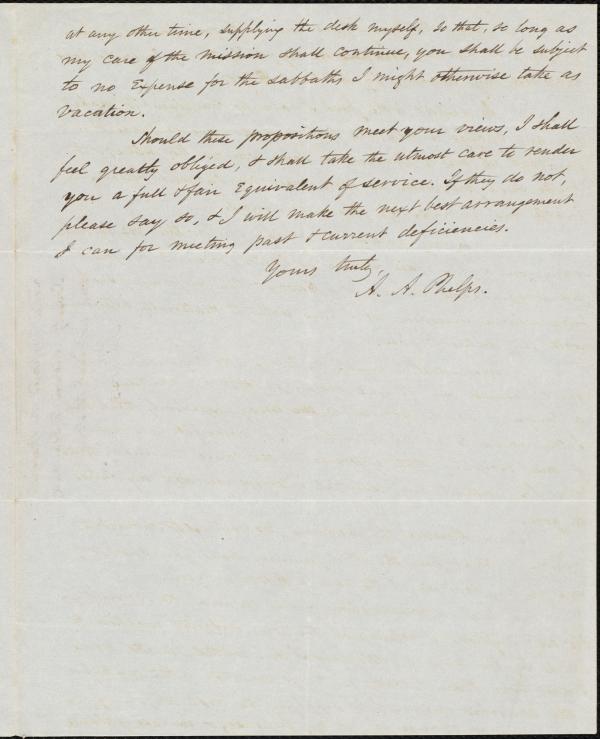 at any other time, supplying the desk myself, so that, so long as
my care of the mission shall continue, you shall be subject
to no expense for the sabbaths I might otherwise take as
vacation.
Should these propositions meet your views, I shall
feel greatly obliged, & shall take the utmost care to render
you a full & fair equivalent of service. If they do not,
please say so, & I will make the next best arrangement
I can for meeting past & current deficiencies.
Yours truly,
A. A. Phelps.